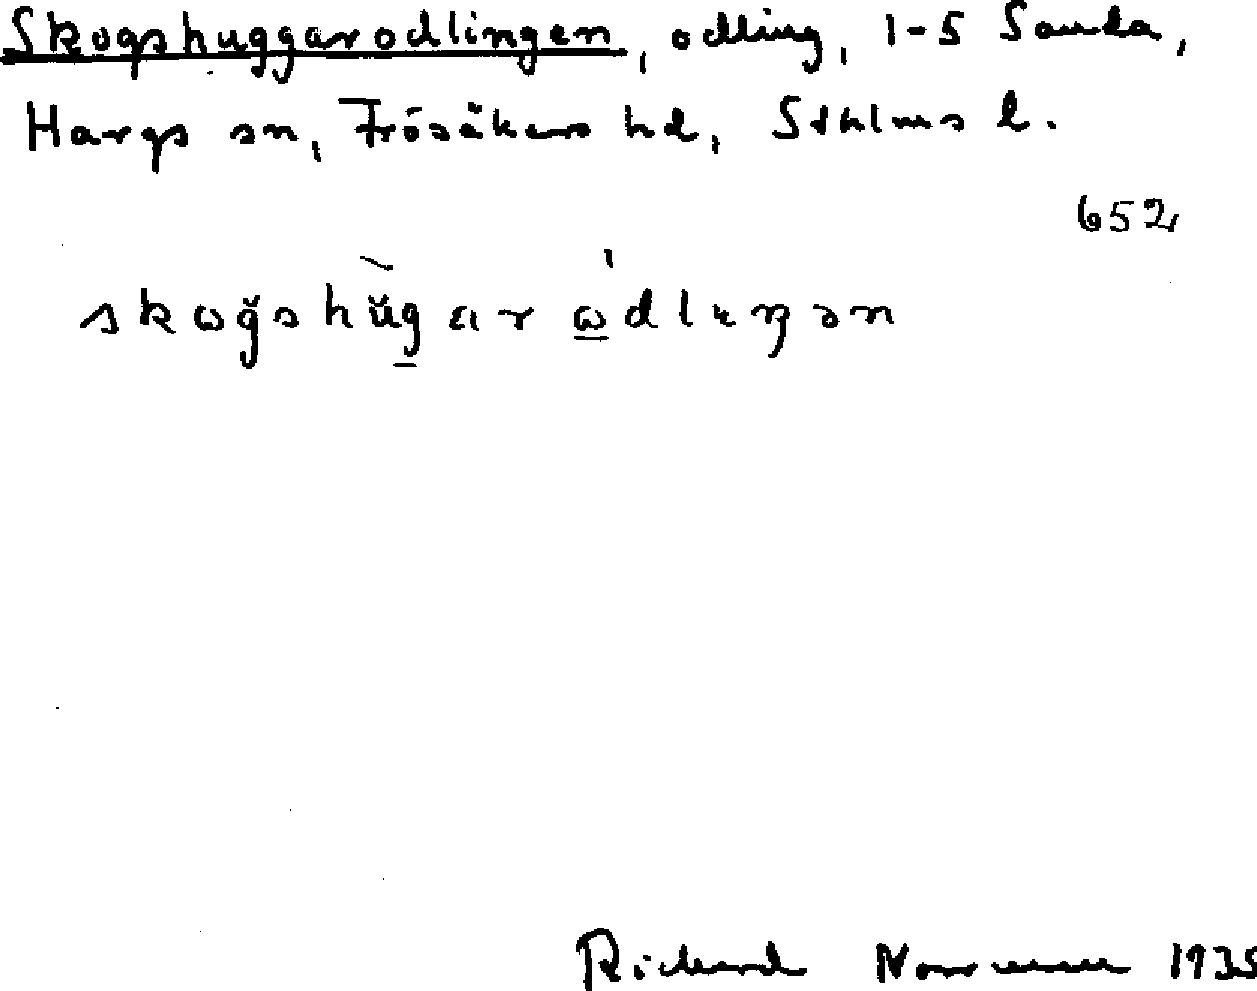 Skogshuggarodlingen, odling, 1-5 Sanda,
Hargs sn, Frösåkers hd, Sthlms l.
652
skoğshŭgar ωdlɩŋən
Richard Norrman 1935